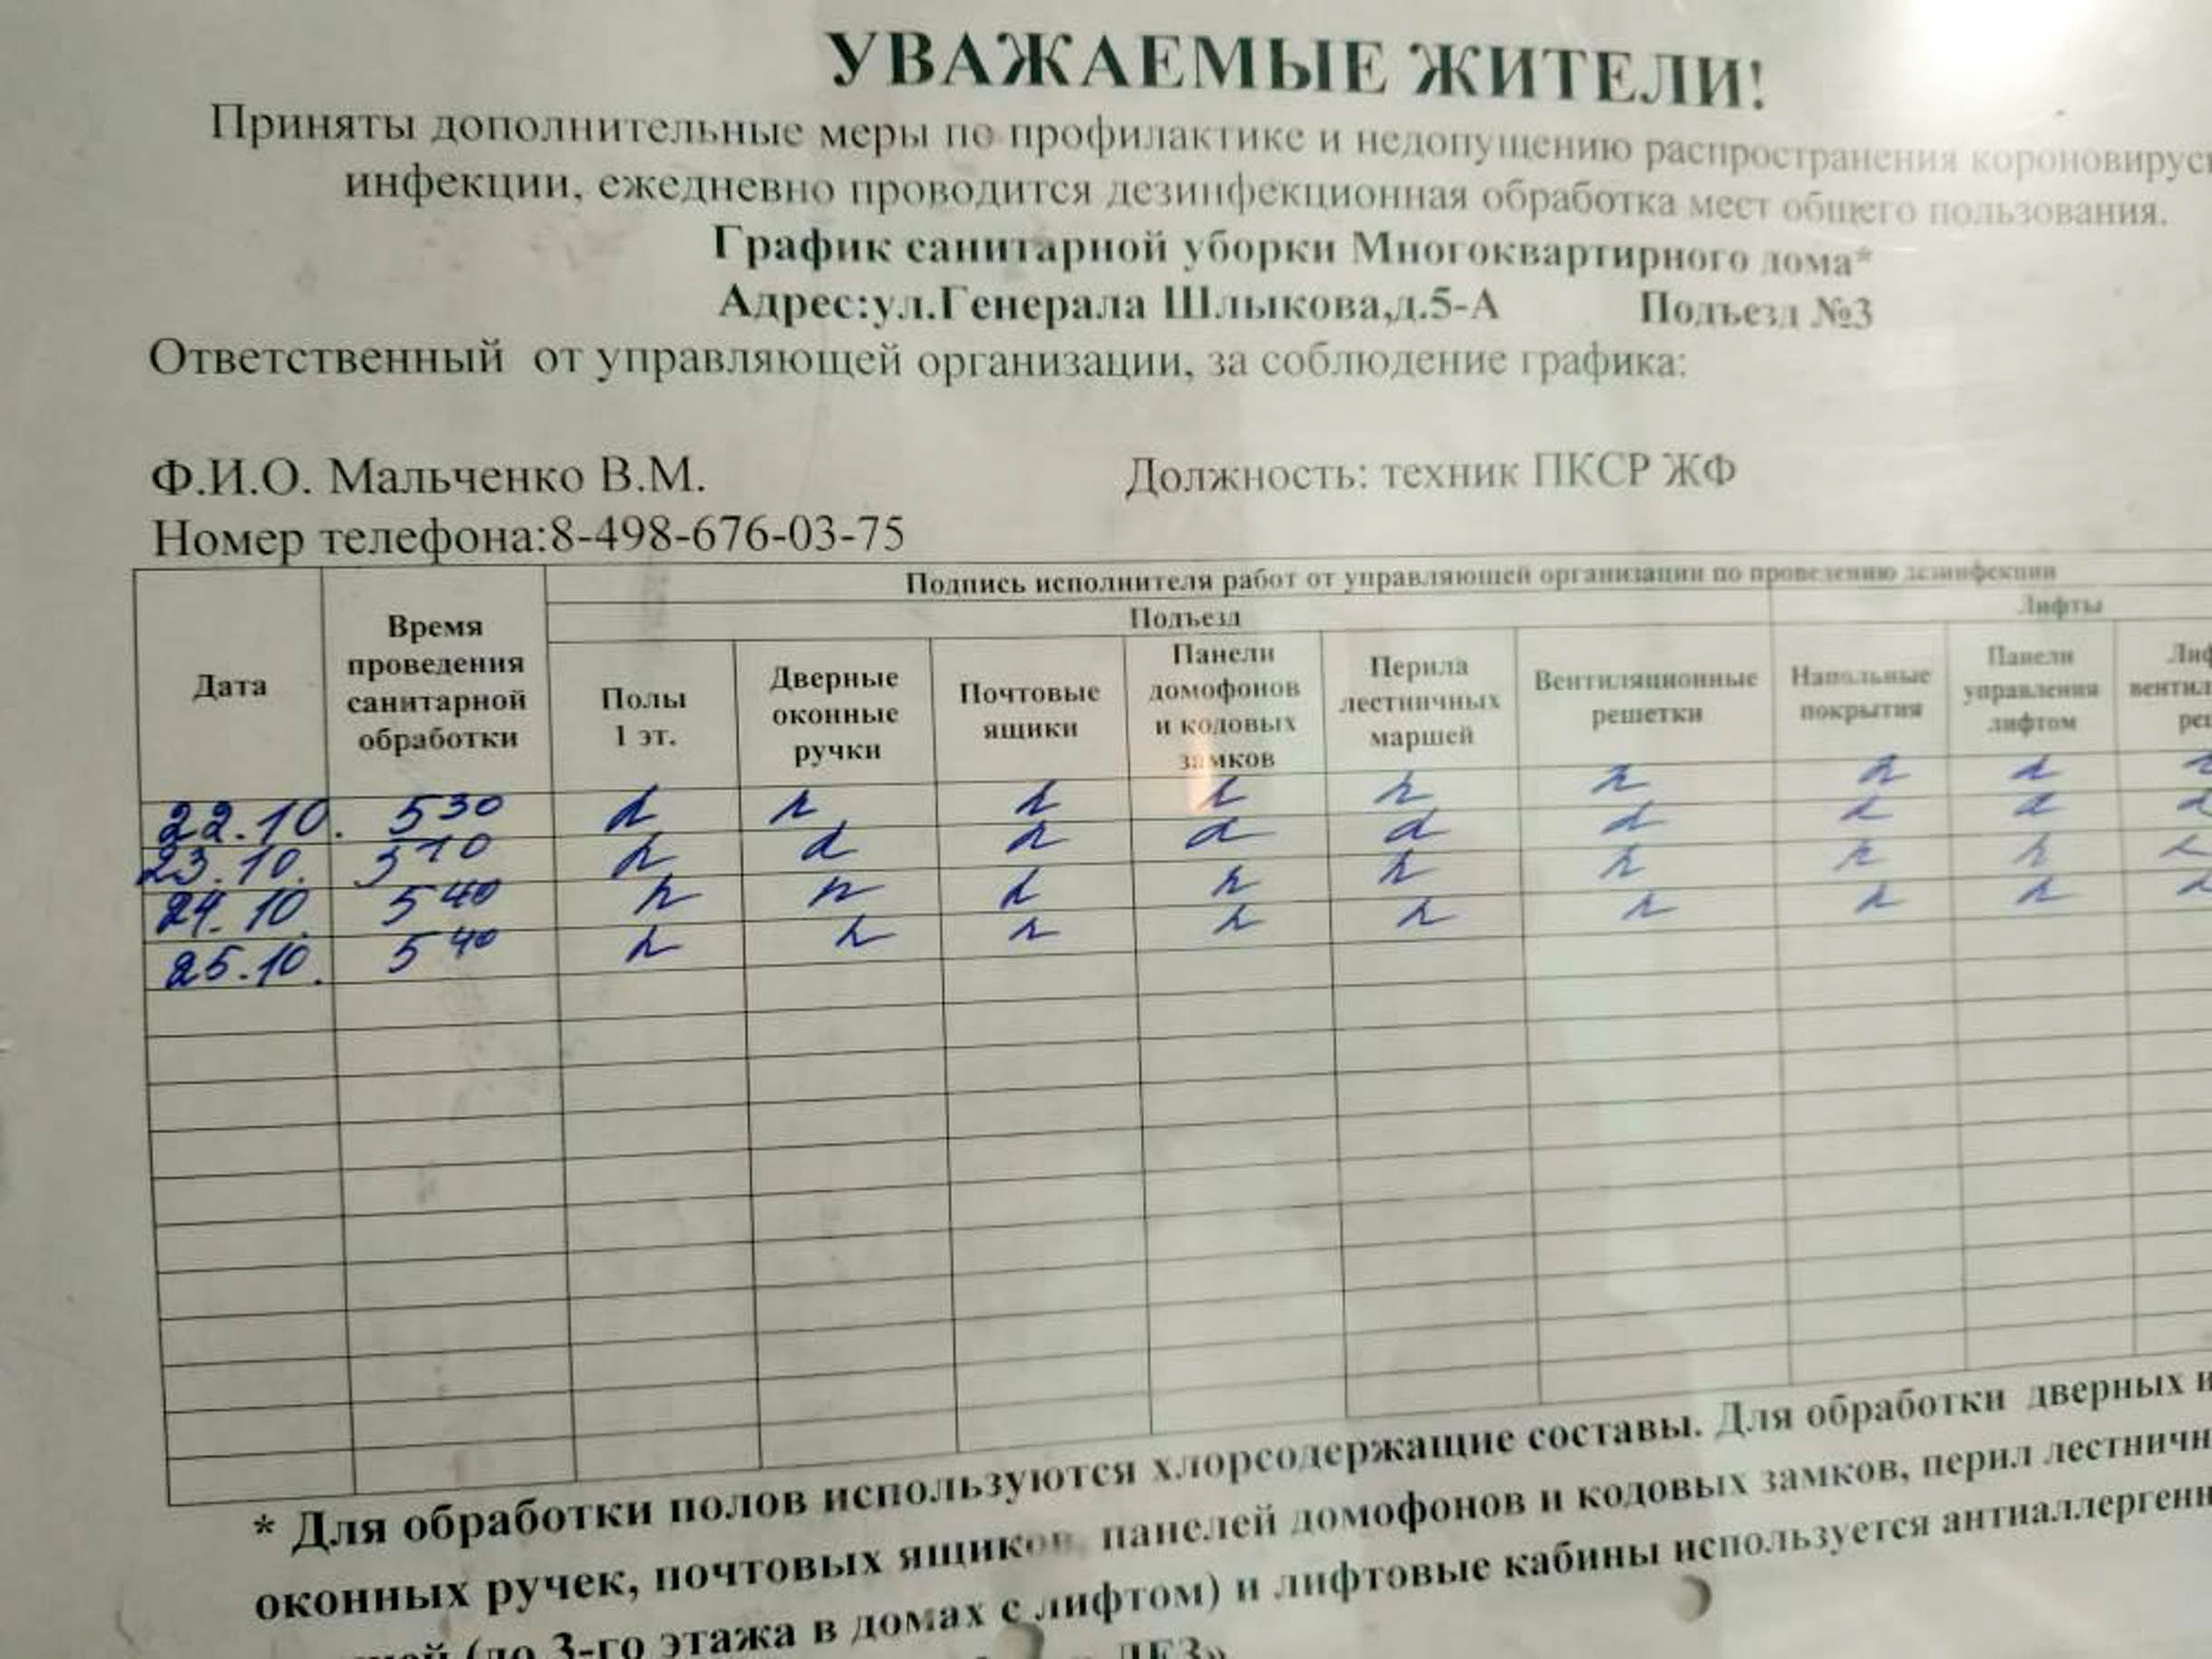 УВАЖАЕМЫЕ ЖИТЕЛИ!
Приняты дополнительные меры по профилактике и недопущению распространения короновирусн
инфекции, ежедневно проводится дезинфекционная обработка мест общего пользования.
График санитарной уборки Многоквартирного дома*
Адрес:ул.Генерала Шлыкова,д.5-А Подъезд №3
Ответственный от управляющей организации, за соблюдение графика:
Ф.И.О. Мальченко В.М. Должность: техник ПКСР ЖФ
Номер телефона:8-498-676-03-75
Подпись исполнителя работ от управляющей организации по проведению дезинфекции
Подъезд Лифты
Дата
Время
проведения
санитарной
обработки
Полы
1 эт.
Дверные
оконные
ручки
Почтовые
ящики
Панели
домофонов
и кодовых
замков
Перила
лестничных
маршей
Вентиляционные
решетки
Напольные
покрытия
Панели
управления
лифтом
Лиф
вентил
реш
22.10. 5 30
23.10. 5 10
24.10. 5 40
25.10. 5 40
* Для обработки полов используются хлорсодержащие составы. Для обработки дверных и
оконных ручек, почтовых ящиков, панелей домофонов и кодовых замков, перил лестничн
(до 3-го этажа в домах с лифтом) и лифтовые кабины используется антиаллергенн
ДЕЗ»